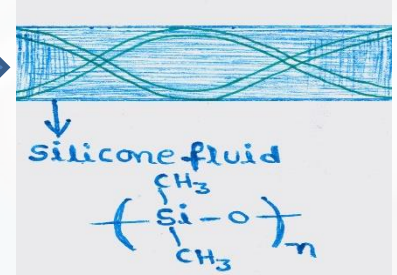 silicone fluid
CH3
( Si - O )n
CH3